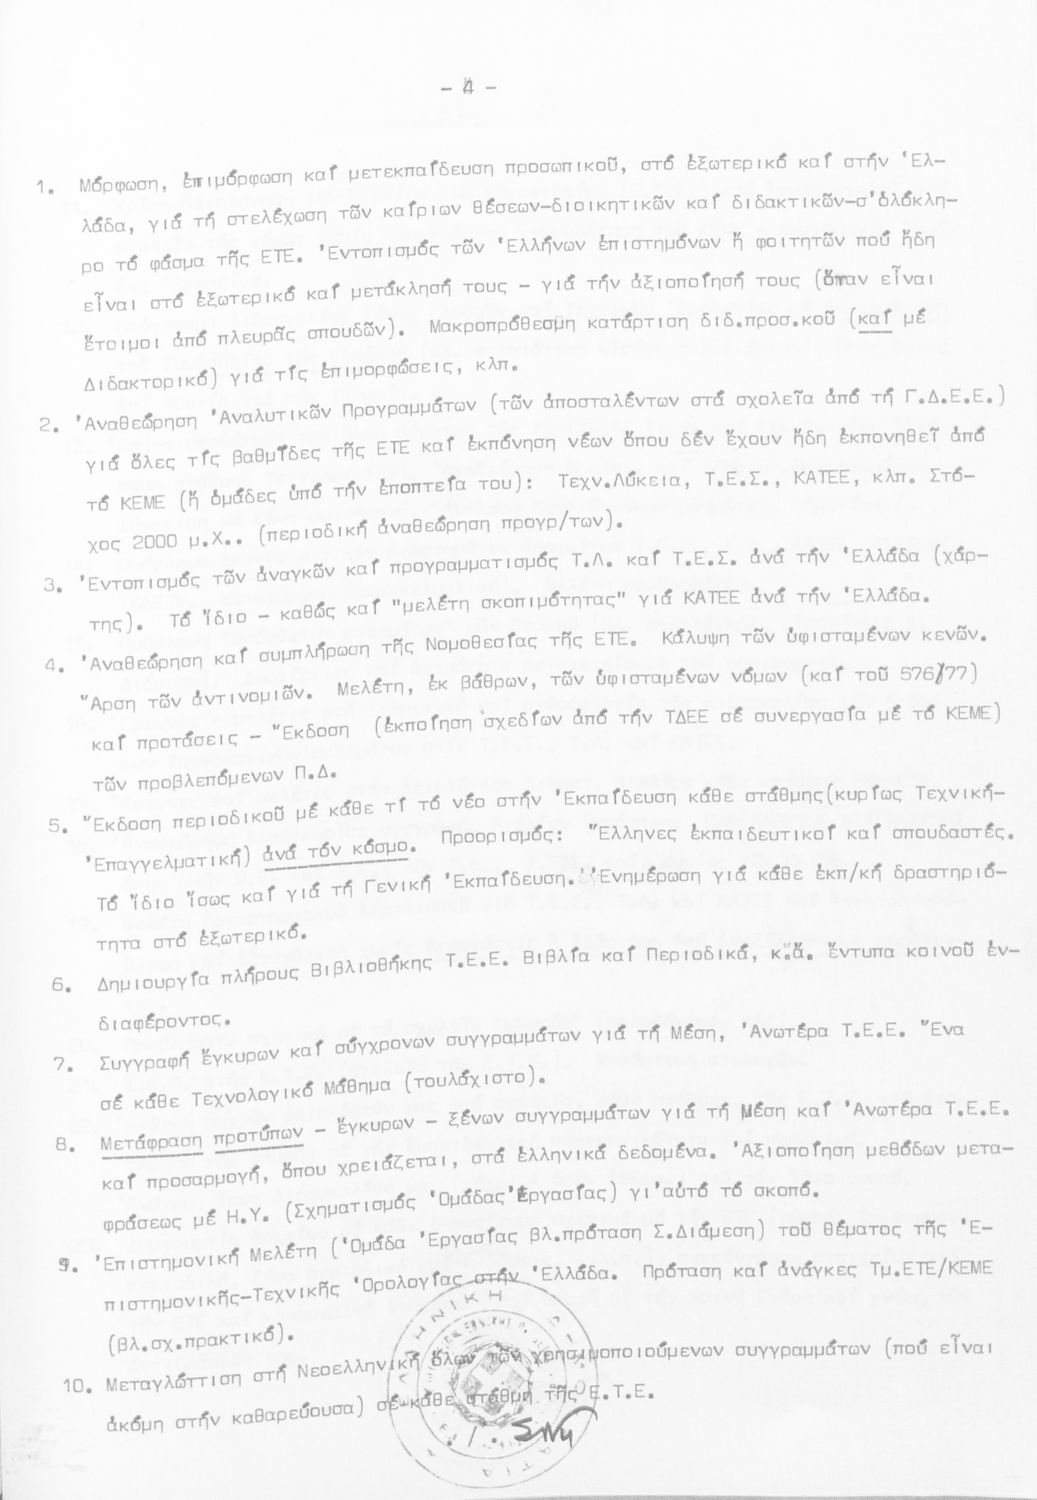 - 4 -
1. Μόρφωση, ἐπιμόρφωση καί μετεκπαίδευση προσωπικοῦ, στό ἐξωτερικό καί στήν Ἑλ-
λάδα, γιά τή στελέχωση τῶν καίριων θέσεων-διοικητικῶν καί διδακτικῶν-σ'ὁλόκλη-
ρο τό φάσμα τῆς ΕΤΕ. Ἐντοπισμός τῶν Ἑλλήνων ἐπιστημόνων ἤ φοιτητῶν πού ἤδη
εἶναι στό ἐξωτερικό καί μετάκλησή τους - γιά τήν ἀξιοποίησή τους (ὅταν εἶναι
ἕτοιμοι ἀπό πλευρᾶς σπουδῶν). Μακροπρόθεσμη κατάρτιση διδ.προσ.κοῦ (καί μέ
Διδακτορικό) γιά τίς ἐπιμορφώσεις, κλπ.
2. Ἀναθεώρηση Ἀναλυτικῶν Προγραμμάτων (τῶν ἀποσταλέντων στά σχολεῖα ἀπό τή Γ.Δ.Ε.Ε.)
γιά ὅλες τίς βαθμῖδες τῆς ΕΤΕ καί ἐκπόνηση νέων ὅπου δέν ἔχουν ἤδη ἐκπονηθεῖ ἀπό
τό ΚΕΜΕ (ἤ ὁμάδες ὑπό τήν ἐποπτεία του): Τεχν.Λύκεια, Τ.Ε.Σ., ΚΑΤΕΕ, κλπ. Στό-
χος 2000 μ.Χ.. (περιοδική ἀναθεώρηση προγρ/των).
3. Ἐντοπισμός τῶν ἀναγκῶν καί προγραμματισμός Τ.Λ. καί Τ.Ε.Σ. ἀνά τήν Ἑλλάδα (χάρ-
της). Τό ἴδιο - καθώς καί "μελέτη σκοπιμότητας" γιά ΚΑΤΕΕ ἀνά τήν Ἑλλάδα.
4. Ἀναθεώρηση καί συμπλήρωση τῆς Νομοθεσίας τῆς ΕΤΕ. Κάλυψη τῶν ὑφισταμένων κενῶν.
Ἄρση τῶν ἀντινομιῶν. Μελέτη, ἐκ βάθρων, τῶν ὑφισταμένων νόμων (καί τοῦ 576/77)
καί προτάσεις - Ἔκδοση (ἐκποίηση σχεδίων ἀπό τήν ΤΔΕΕ σέ συνεργασία μέ τό ΚΕΜΕ)
τῶν προβλεπόμενων Π.Δ.
5. Ἔκδοση περιοδικοῦ μέ κάθε τί τό νέο στήν Ἐκπαίδευση κάθε στάθμης(κυρίως Τεχνική-
Ἐπαγγελματική) ἀνά τόν κόσμο. Προορισμός: Ἕλληνες ἐκπαιδευτικοί καί σπουδαστές.
Τό ἴδιο ἴσως καί γιά τή Γενική Ἐκπαίδευση. Ἐνημέρωση γιά κάθε ἐκπ/κή δραστηριό-
τητα στό ἐξωτερικό.
6. Δημιουργία πλήρους Βιβλιοθήκης Τ.Ε.Ε. Βιβλία καί Περιοδικά, κ.ἄ. ἔντυπα κοινοῦ ἐν-
διαφέροντος.
7. Συγγραφή ἔγκυρων καί σύγχρονων συγγραμμάτων γιά τή Μέση, Ἀνωτέρα Τ.Ε.Ε. Ἕνα
σέ κάθε Τεχνολογικό Μάθημα (τουλάχιστο).
8. Μετάφραση προτύπων - ἔγκυρων - ξένων συγγραμμάτων γιά τή Μέση καί Ἀνωτέρα Τ.Ε.Ε.
καί προσαρμογή, ὅπου χρειάζεται, στά ἑλληνικά δεδομένα. Ἀξιοποίηση μεθόδων μετα-
φράσεως μέ Η.Υ. (Σχηματισμός Ὁμάδας Ἐργασίας) γι'αὐτό τό σκοπό.
9. Ἐπιστημονική Μελέτη (Ὁμάδα Ἐργασίας βλ.πρόταση Σ.Διάμεση) τοῦ θέματος τῆς Ἐ-
πιστημονικῆς-Τεχνικῆς Ὁρολογίας στήν Ἑλλάδα. Πρόταση καί ἀνάγκες Τμ.ΕΤΕ/ΚΕΜΕ
(βλ.σχ.πρακτικό).
10. Μεταγλώττιση στή Νεοελληνική ὅλων τῶν χρησιμοποιούμενων συγγραμμάτων (πού εἶναι
ἀκόμη στήν καθαρεύουσα) σέ κάθε στάθμη τῆς Ε.Τ.Ε.
./.